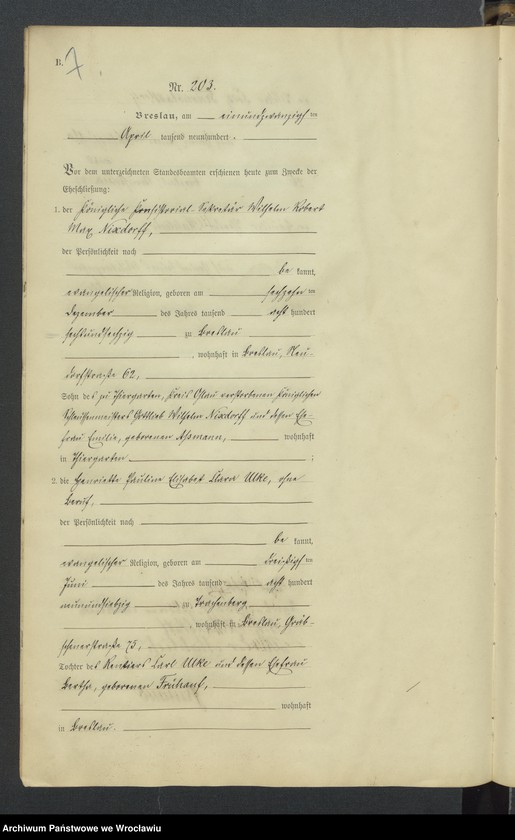 B. 7
Nr. 203.
Breslau, am einundzwanzigsten
April tausend neunhundert.
Vor dem unterzeichneten Standesbeamten erschienen heute zum Zwecke der
Eheschließung:
1. der Königliche Konsistorial-Sekretär Wilhelm Robert
Max Nixdorff,
der Persönlichkeit nach
be kannt,
evangelischer Religion, geboren am sechzehnten
Dezember des Jahres tausend acht hundert
sechsundsechzig zu Breslau
, wohnhaft in Breslau, Neu-
dorfstraße 62,
Sohn des zu Thiergarten, Kreis Ohlau verstorbenen Königlichen
Schleusenmeisters Gottlieb Wilhelm Nixdorff und dessen Ehe-
frau Emilie, geborenen Aßmann, wohnhaft
in Thiergarten ;
2. die Henriette Pauline Elisabet Clara Ulke, ohne
Beruf,
der Persönlichkeit nach
be kannt,
evangelischer Religion, geboren am dreißigsten
Juni des Jahres tausend acht hundert
neunundsiebzig zu Trachenberg
, wohnhaft in Breslau, Gräb-
schenerstraße 75,
Tochter des Rentiers Carl Ulke und dessen Ehefrau
Bertha, geborenen Frühauf,
wohnhaft
in Breslau.
Archiwum Państwowe we Wrocławiu